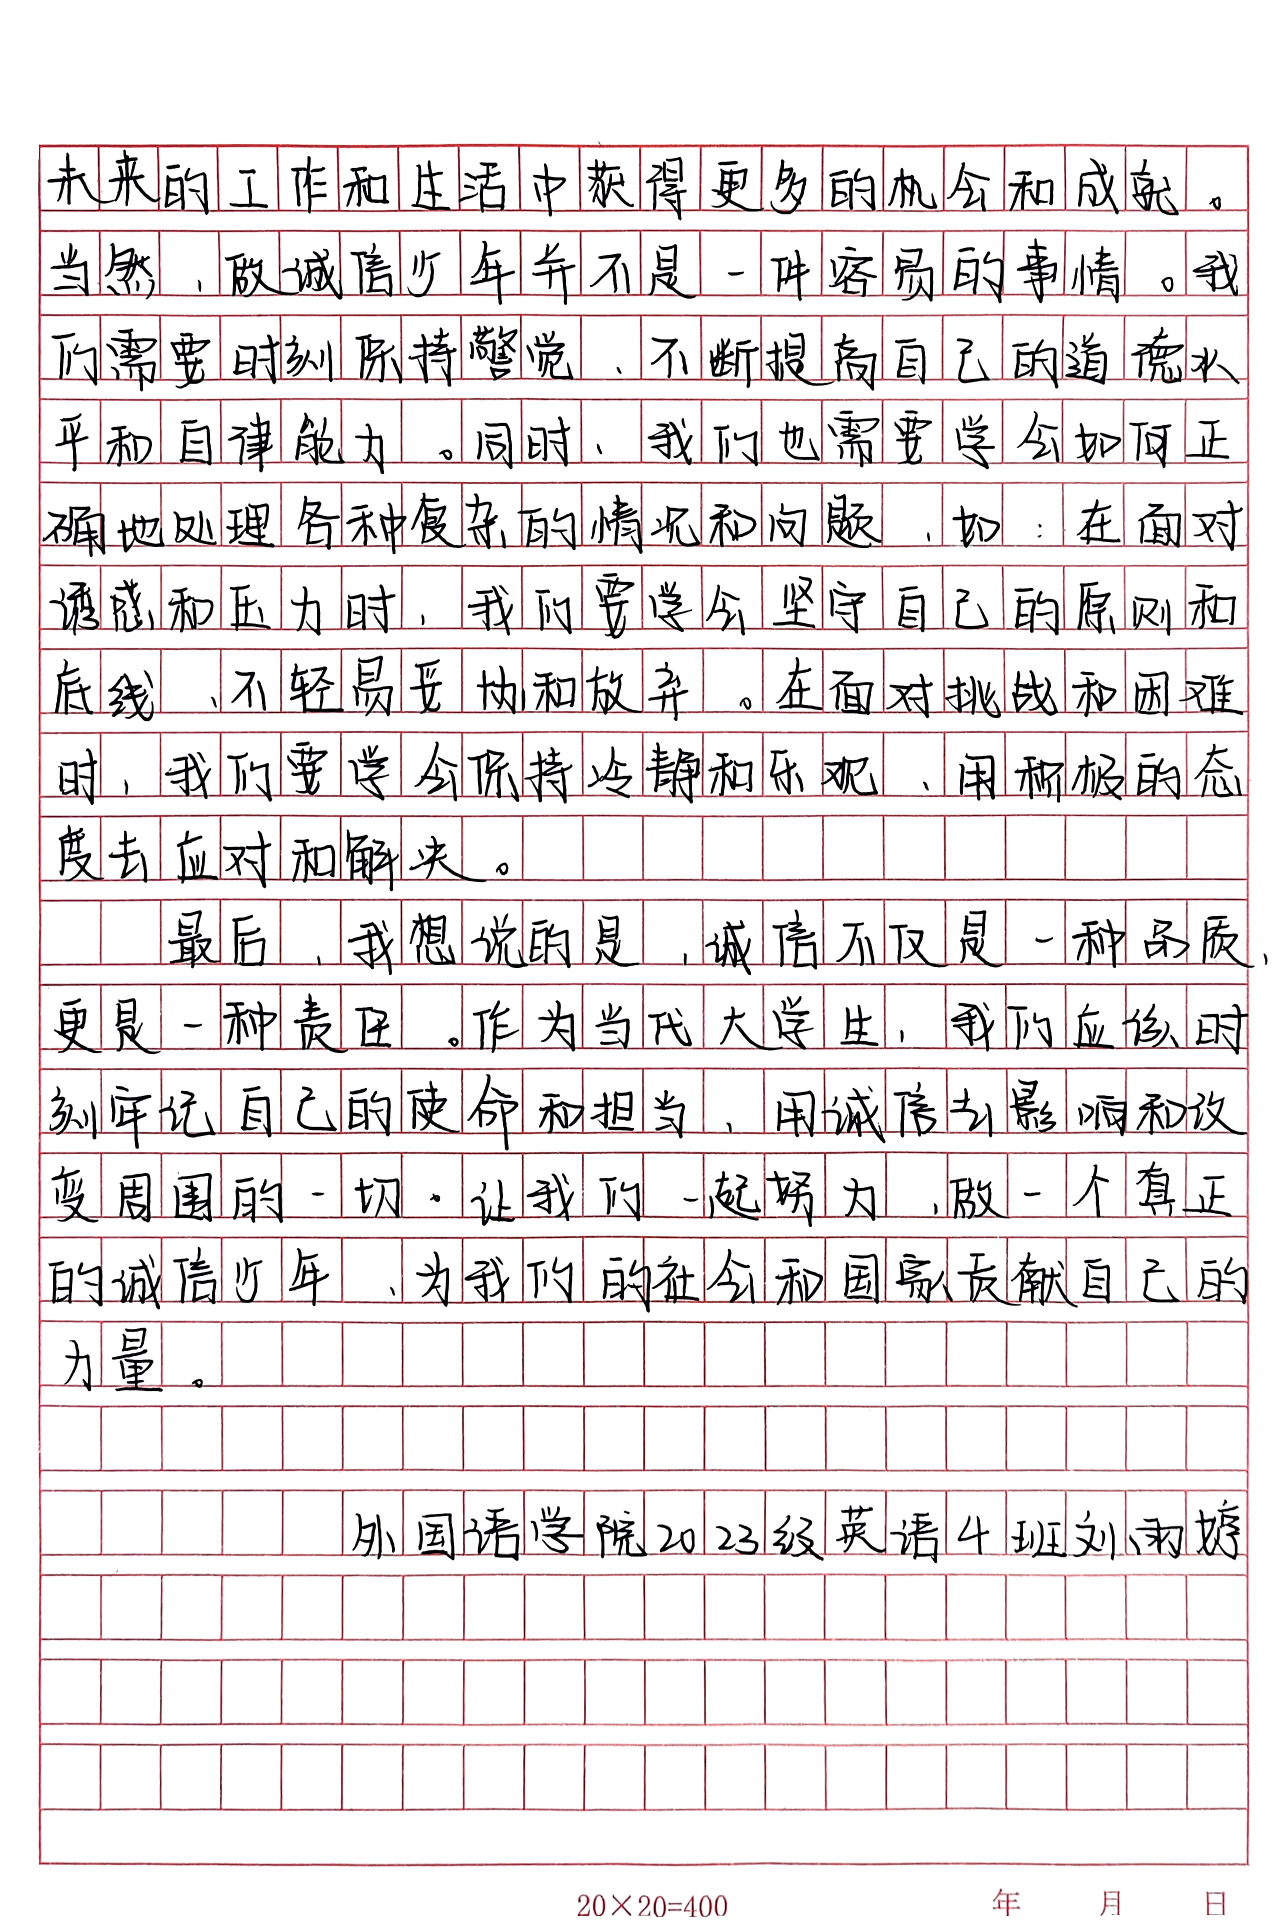 未来的工作和生活中获得更多的机会和成就。
当然，做诚信少年并不是一件容易的事情。我
们需要时刻保持警觉，不断提高自己的道德水
平和自律能力。同时，我们也需要学会如何正
确地处理各种复杂的情况和问题，如：在面对
诱惑和压力时，我们要学会坚守自己的原则和
底线，不轻易妥协和放弃。在面对挑战和困难
时，我们要学会保持冷静和乐观，用积极的态
度去应对和解决。
最后，我想说的是，诚信不仅是一种品质，
更是一种责任。作为当代大学生，我们应该时
刻牢记自己的使命和担当，用诚信去影响和改
变周围的一切。让我们一起努力，做一个真正
的诚信少年，为我们的社会和国家贡献自己的
力量。
外国语学院2023级英语4班刘雨婷
20×20=400 年 月 日